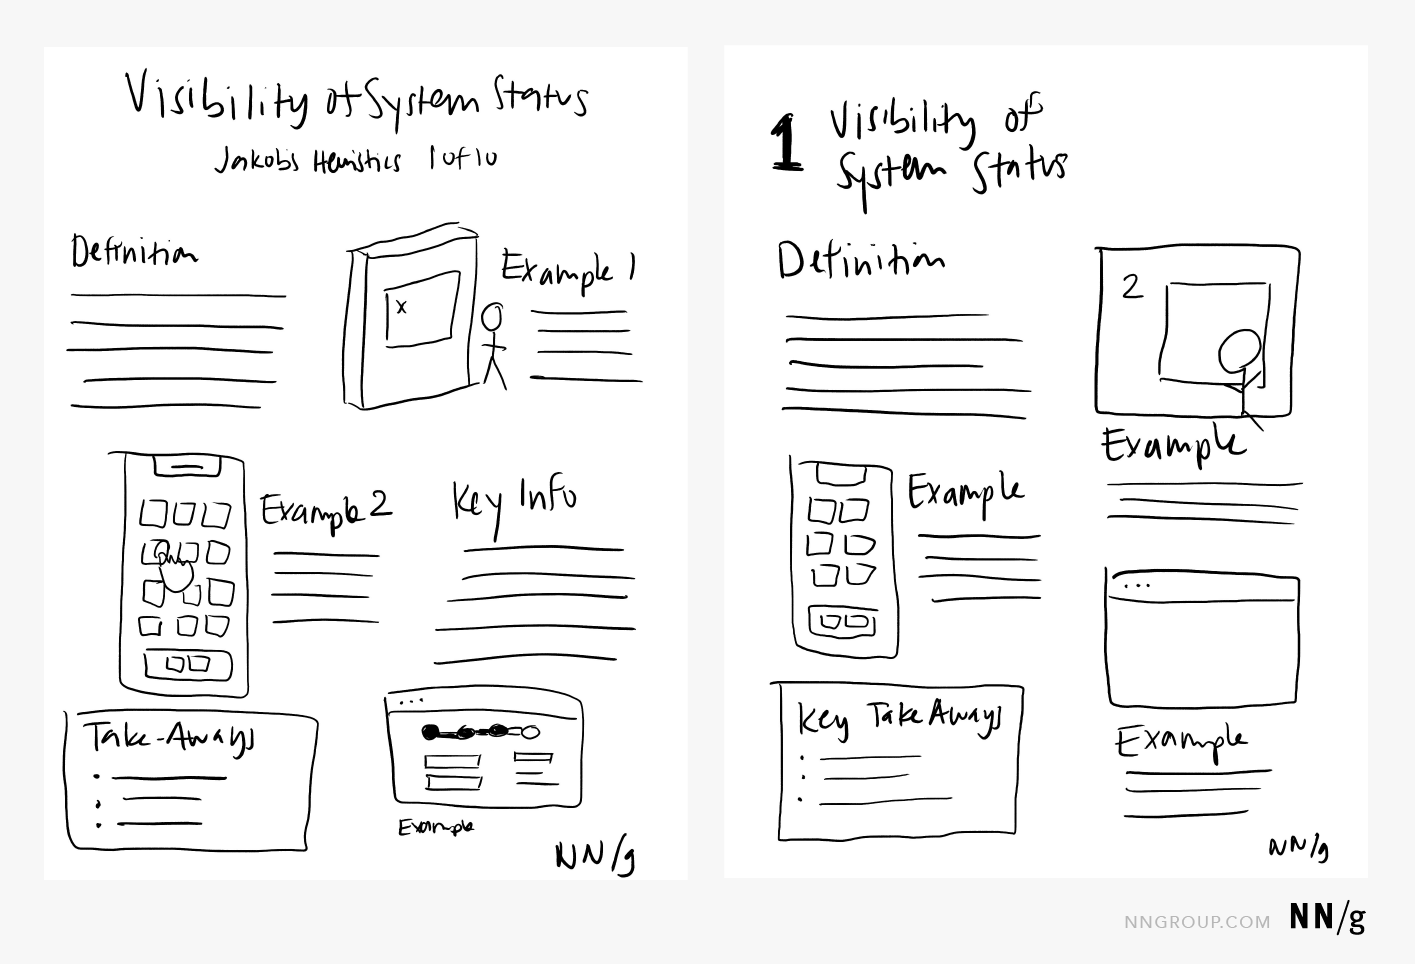 Visibility of System Status
Jakob's Heuristics 1 of 10
Definition
x
Example 1
Example 2
Key Info
Take-Aways
Example
NN/g
1
Visibility of
System Status
Definition
2
Example
Example
Key TakeAways
Example
NN/g
NNGROUP.COM NN/g